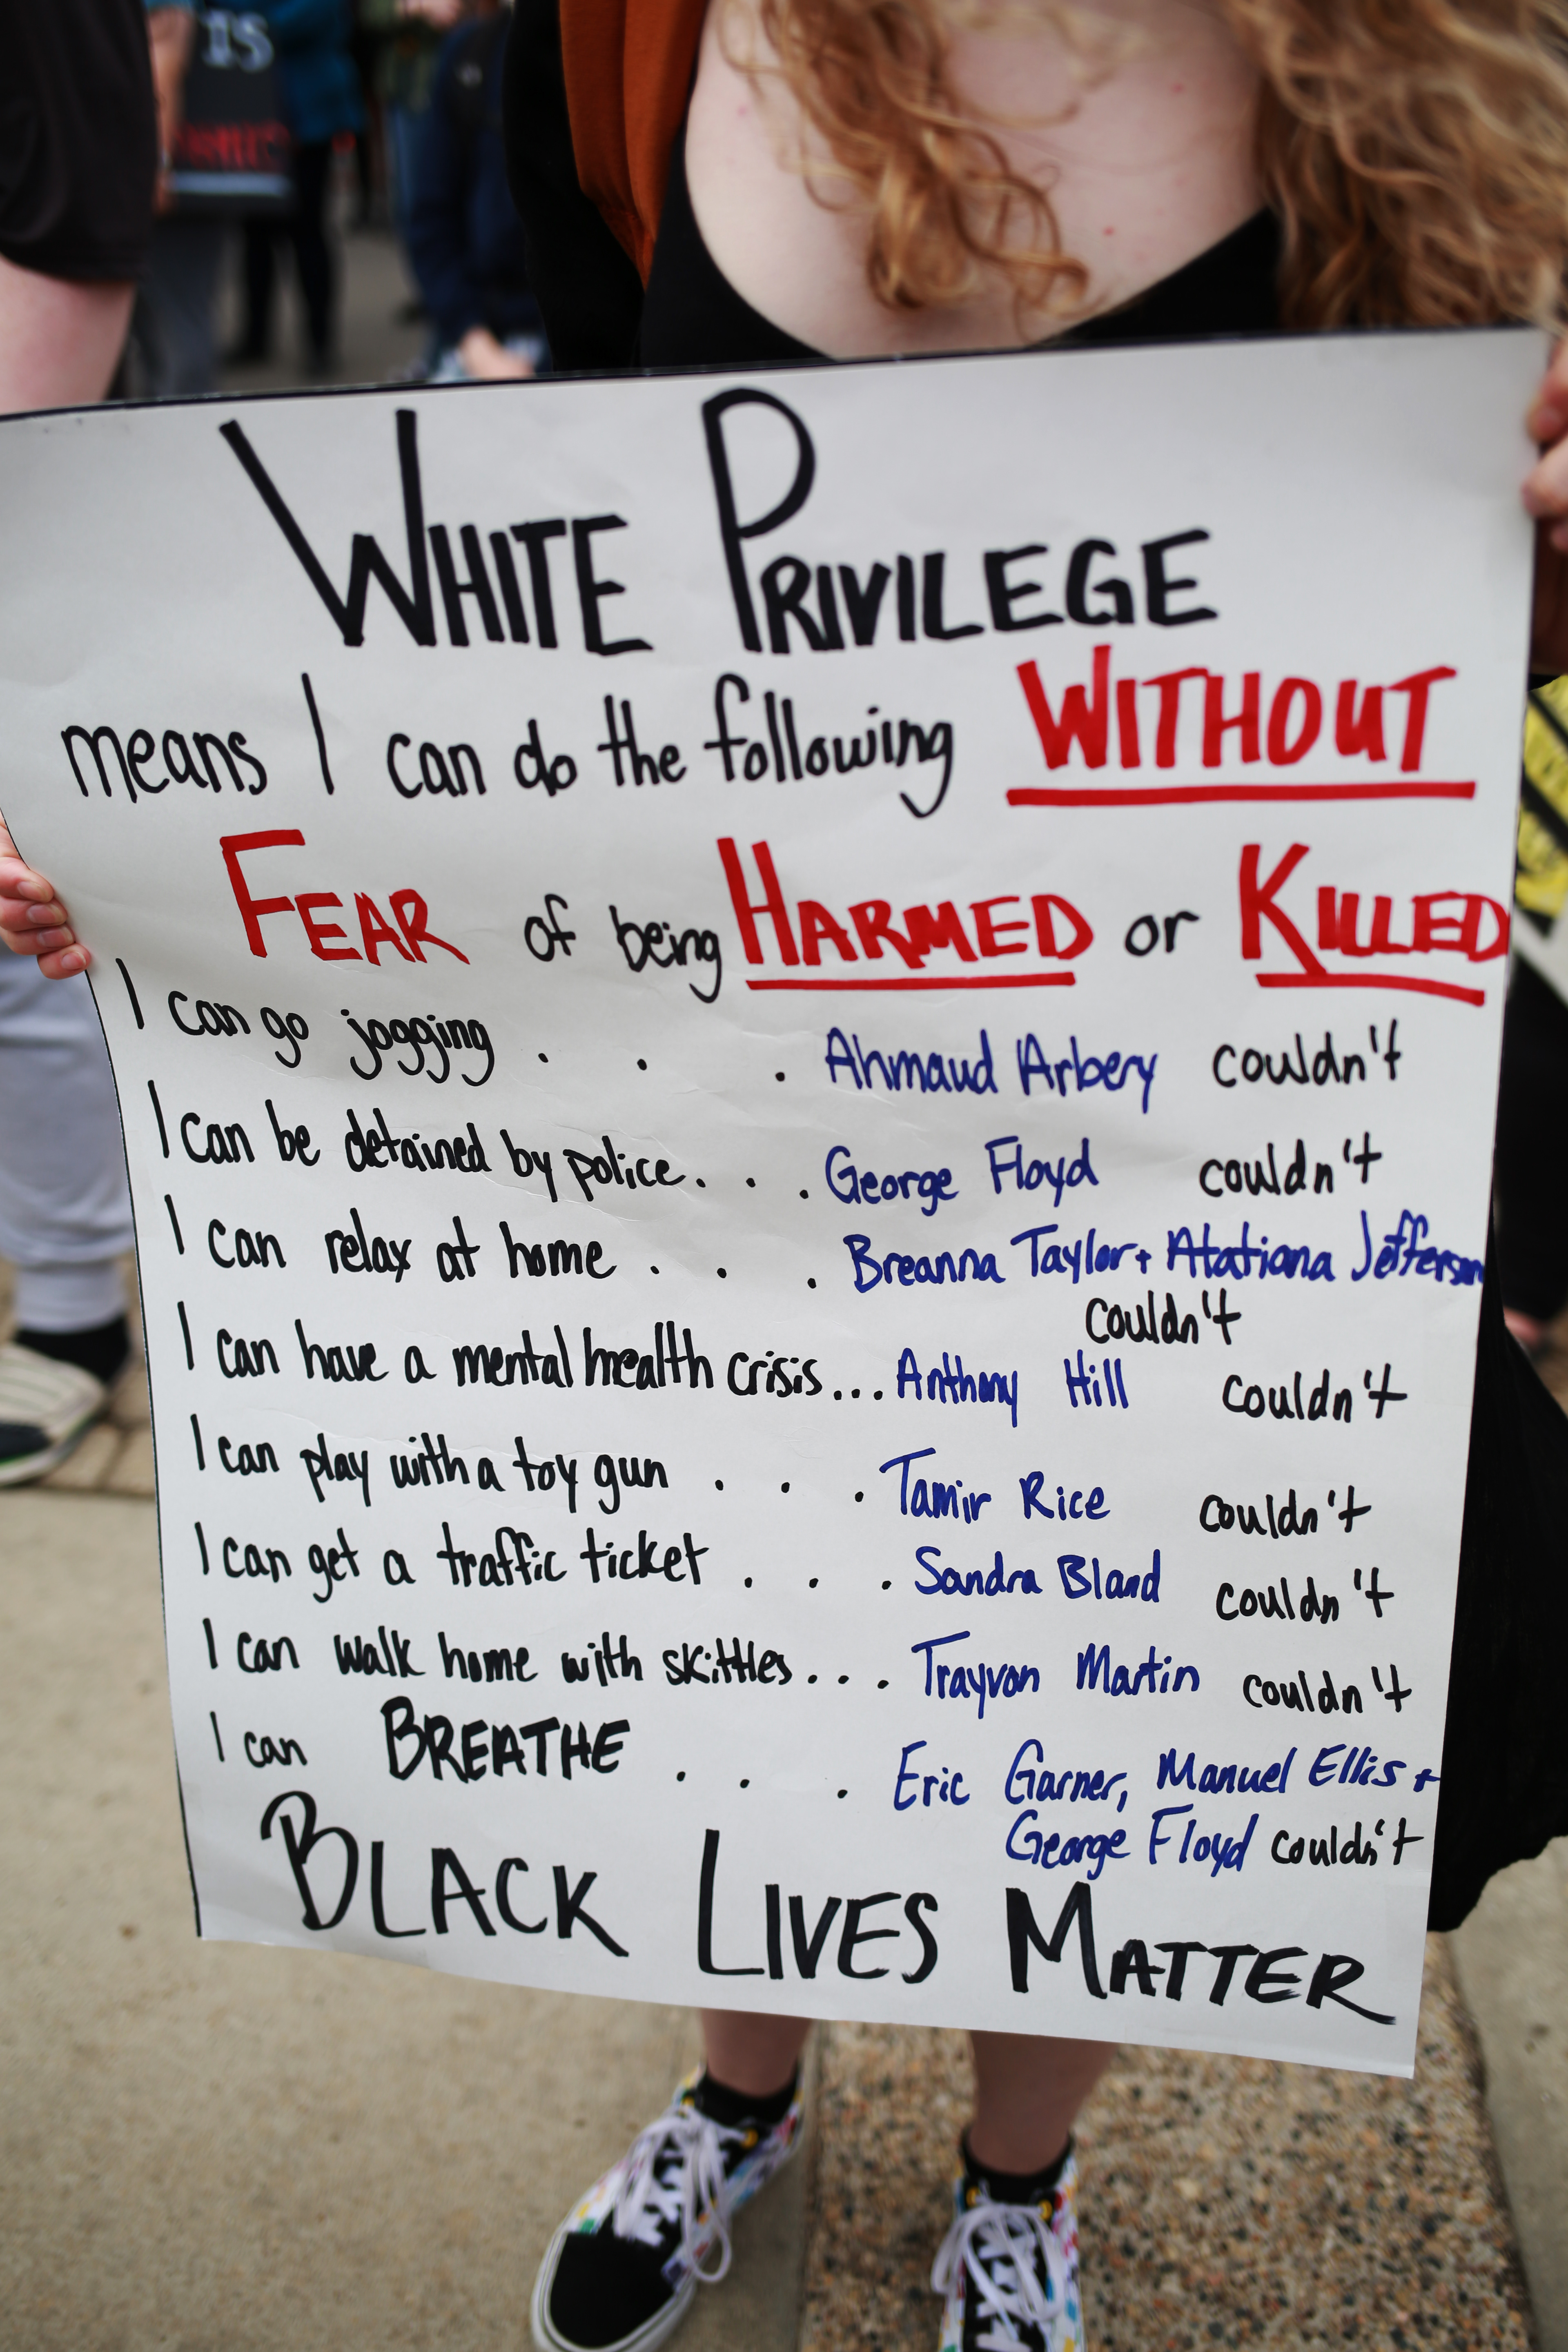 IS
WHITE PRIVILEGE
means I can do the following WITHOUT
FEAR of being HARMED or KILLED
I can go jogging . . . Ahmaud Arbery couldn't
I can be detained by police. . . George Floyd couldn't
I can relax at home . . . Breanna Taylor + Atatiana Jefferson
couldn't
I can have a mental health crisis... Anthony Hill couldn't
I can play with a toy gun . . . Tamir Rice couldn't
I can get a traffic ticket . . . Sandra Bland couldn't
I can walk home with skittles . . . Trayvon Martin couldn't
I can BREATHE . . . Eric Garner, Manuel Ellis +
George Floyd couldn't
BLACK LIVES MATTER